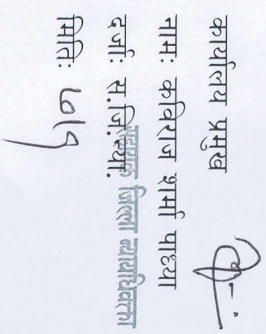 कार्यालय प्रमुख
नामः कविराज शर्मा पाध्या
दर्जाः स.जि.न्या.
सहायक जिल्ला न्यायाधिवक्ता
मितिः ७/९